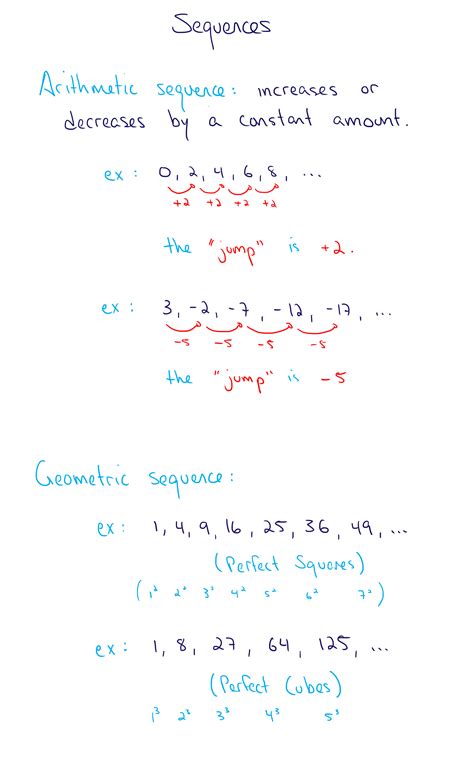 Sequences
Arithmetic sequence: increases or
decreases by a constant amount.
ex: 0, 2, 4, 6, 8, ...
+2 +2 +2 +2
the "jump" is +2.
ex: 3, -2, -7, -12, -17, ...
-5 -5 -5 -5
the "jump" is -5
Geometric sequence:
ex: 1, 4, 9, 16, 25, 36, 49, ...
(Perfect Squares)
(1² 2² 3² 4² 5² 6² 7²)
ex: 1, 8, 27, 64, 125, ...
(Perfect Cubes)
1³ 2³ 3³ 4³ 5³